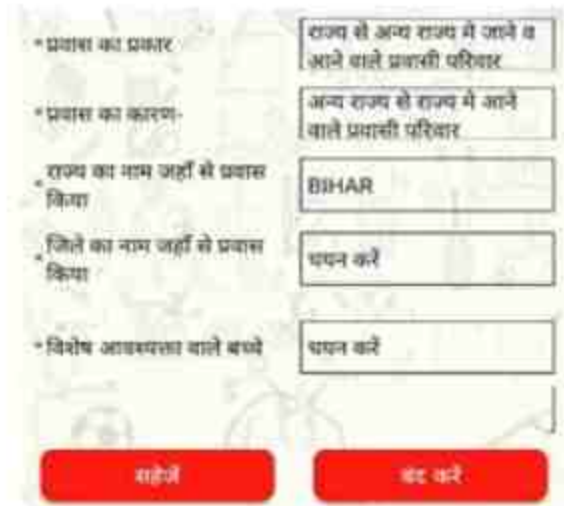 * प्रवास का प्रकार
राज्य से अन्य राज्य मे जाने व
आने वाले प्रवासी परिवार
* प्रवास का कारण-
अन्य राज्य से राज्य मे आने
वाले प्रवासी परिवार
* राज्य का नाम जहाँ से प्रवास
किया
BIHAR
* जिले का नाम जहाँ से प्रवास
किया
चयन करें
* विशेष आवश्यक्ता वाले बच्चे
चयन करें
सहेजें
बंद करें